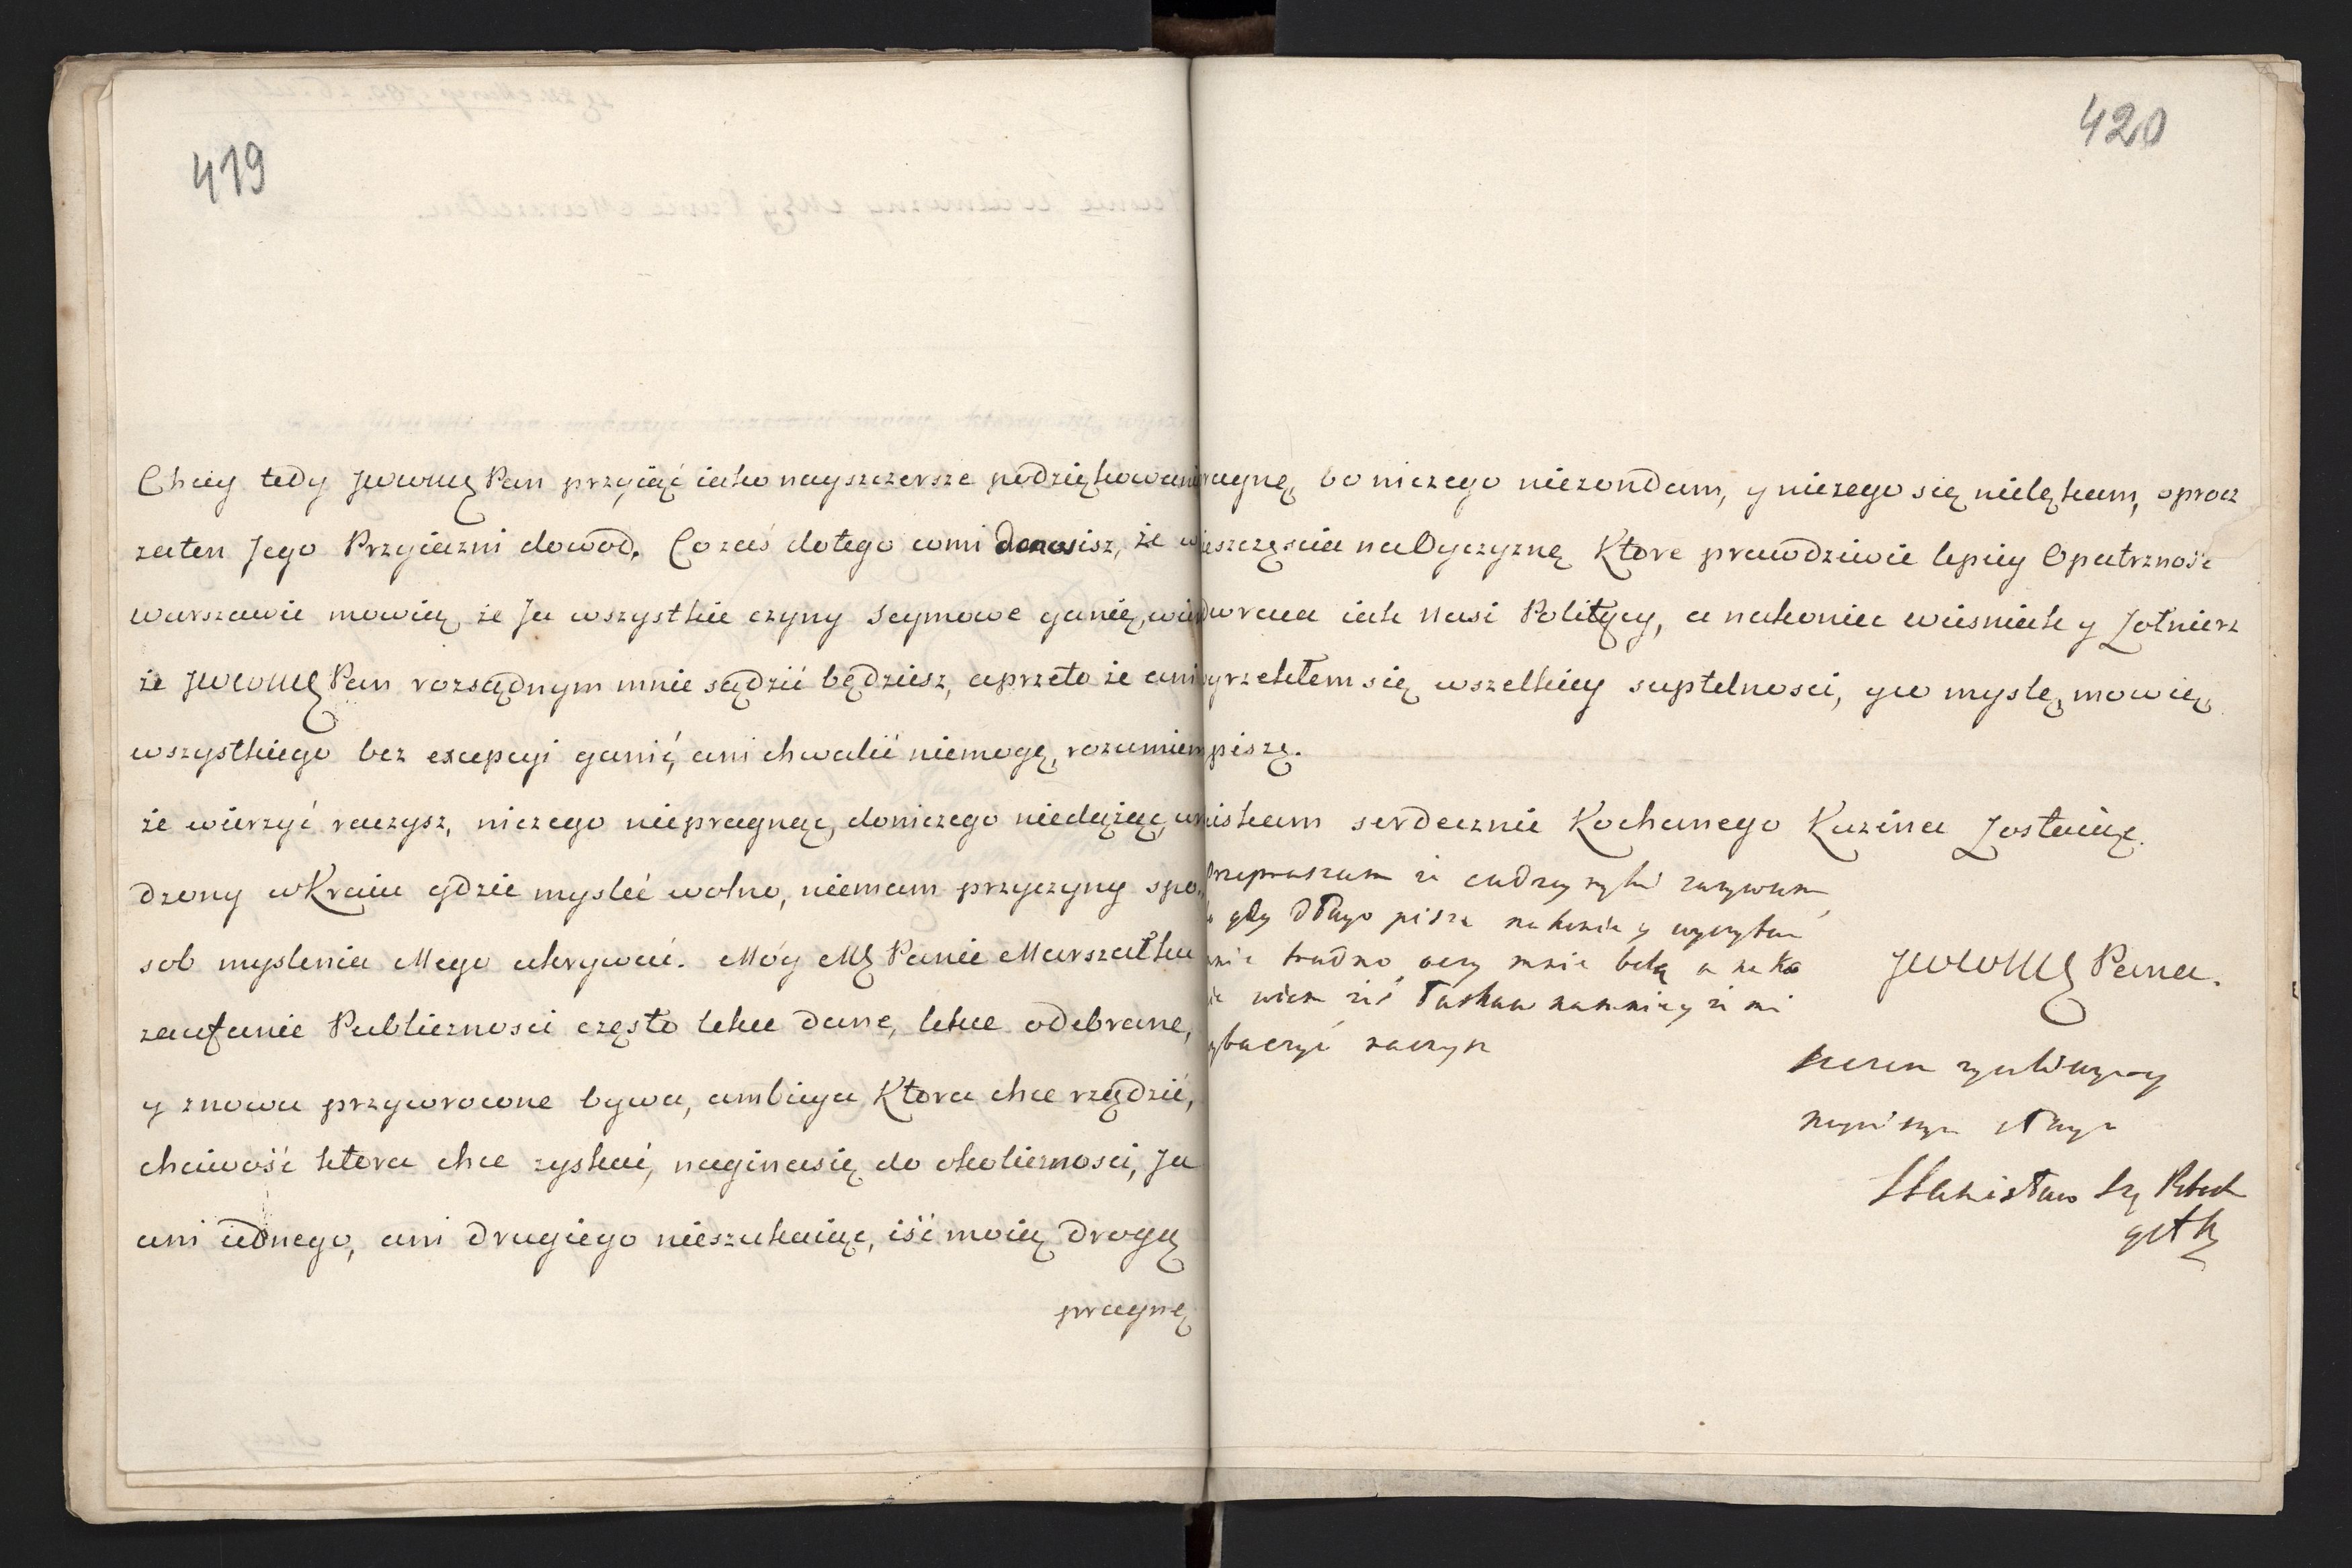 419
Chciey tedy JWWMĘ Pan przyiąć iako nayszczersze podziękowani
zaten Jego Przyiazni dowod. Co zaś dotego comi donosisz, że w
Warszawie mowią, że Ja wszystkie czyny Seymowe ganię, wie
że JWWMĘ Pan rozsądnym mnie sądzić będziesz, aprzeto że ani
wszystkiego bez excepcyi ganić, ani chwalić niemogę, rozumiem
że wierzyć raczysz, niczego niepragnąc, doniczego niedążąc, uro
dzony w Kraiu gdzie mysleć wolno, niemam przyczyny spo
sob myslenia Mego ukrywać. Móy MĘ Panie Marszałku
zaufanie Publicznosci często lekce dane, lekce odebrane,
y znowu przywrocone bywa, ambicya Ktora chce rządzić,
chciwość ktora chce zyskać, naginasię do okolicznosci, Ja
ani iednego, ani drugiego nieszukaiąc, iść moią drogą
pragnę
420
ragnę, bo niczego niezondam, y niczego się nielękam, oprocz
ieszczęscia na Oyczyznę Ktore prawdziwie lepiey Opatrzność
dwraca iak Nasi Politycy, a nakoniec wiesniak y Zołnierz
yrzekłem się wszelkiey suptelnosci, y co myslę, mowię,
piszę.
iskam serdecznie Kochanego Kuzina Zostaiąc.
Przepraszam że cudzey ręki zazywam,
gdy długo piszę nakoniec y wyczytać
nie trudno, oczy mnie bolą a
wiem żeś Łaskaw namnie y że mi
ybaczyć raczysz
JWWMĘ Pana.
szczerze zyczliwym y
nayniższym sługą
Stanisław Sz Potock